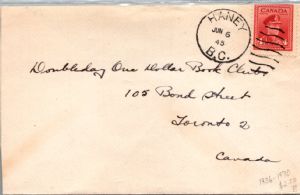 HANEY
JUN 6
45
B.C.
CANADA
Doubleday One Dollar Book Club
105 Bond Street
Toronto 2
Canada
1936-1930